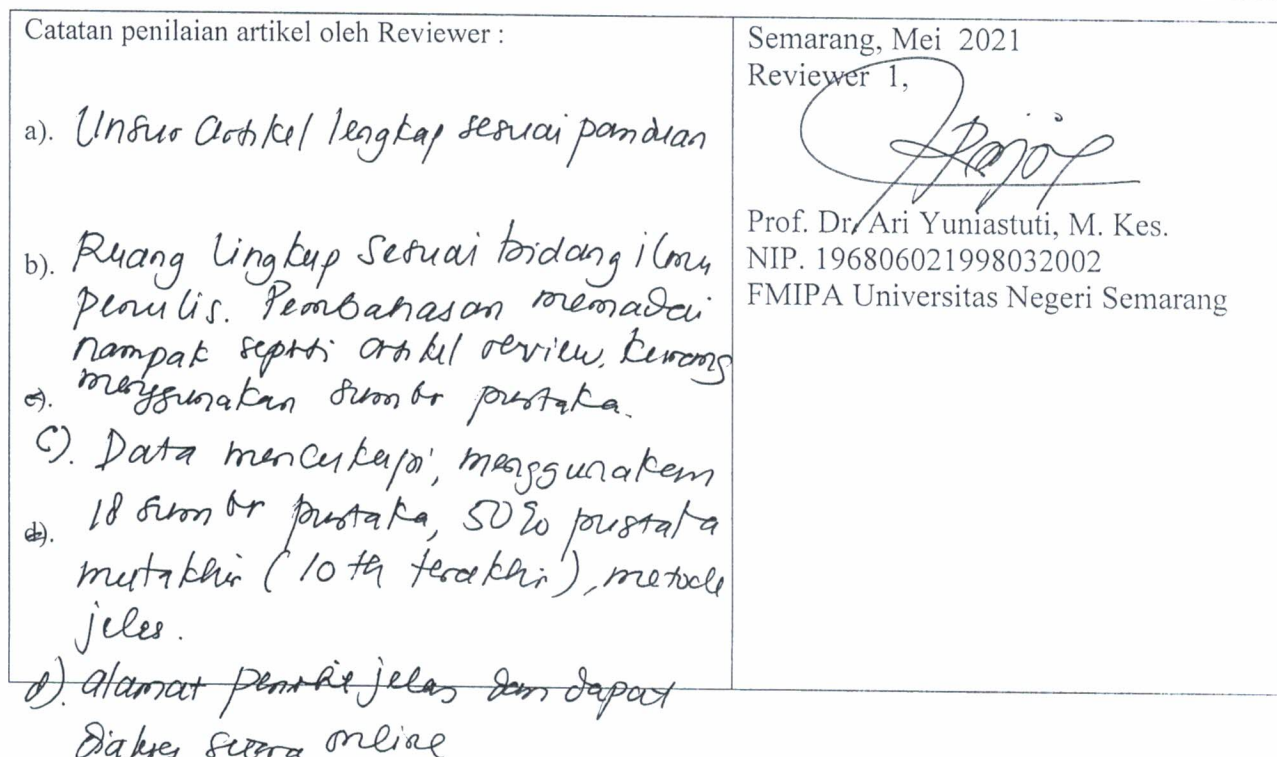 Catatan penilaian artikel oleh Reviewer :
a). Unsur artikel lengkap sesuai panduan
b). Ruang lingkup sesuai bidang ilmu
penulis. Pembahasan memadai
nampak seperti artikel review. kurang
c). menggunakan sumber pustaka.
C). Data mencukupi, menggunakan
d). 18 sumber pustaka, 50% pustaka
mutakhir (10 th terakhir), metode
jelas.
d). alamat penerbit jelas dan dapat
diakses secara online
Semarang, Mei 2021
Reviewer 1,
Prof. Dr. Ari Yuniastuti, M. Kes.
NIP. 196806021998032002
FMIPA Universitas Negeri Semarang